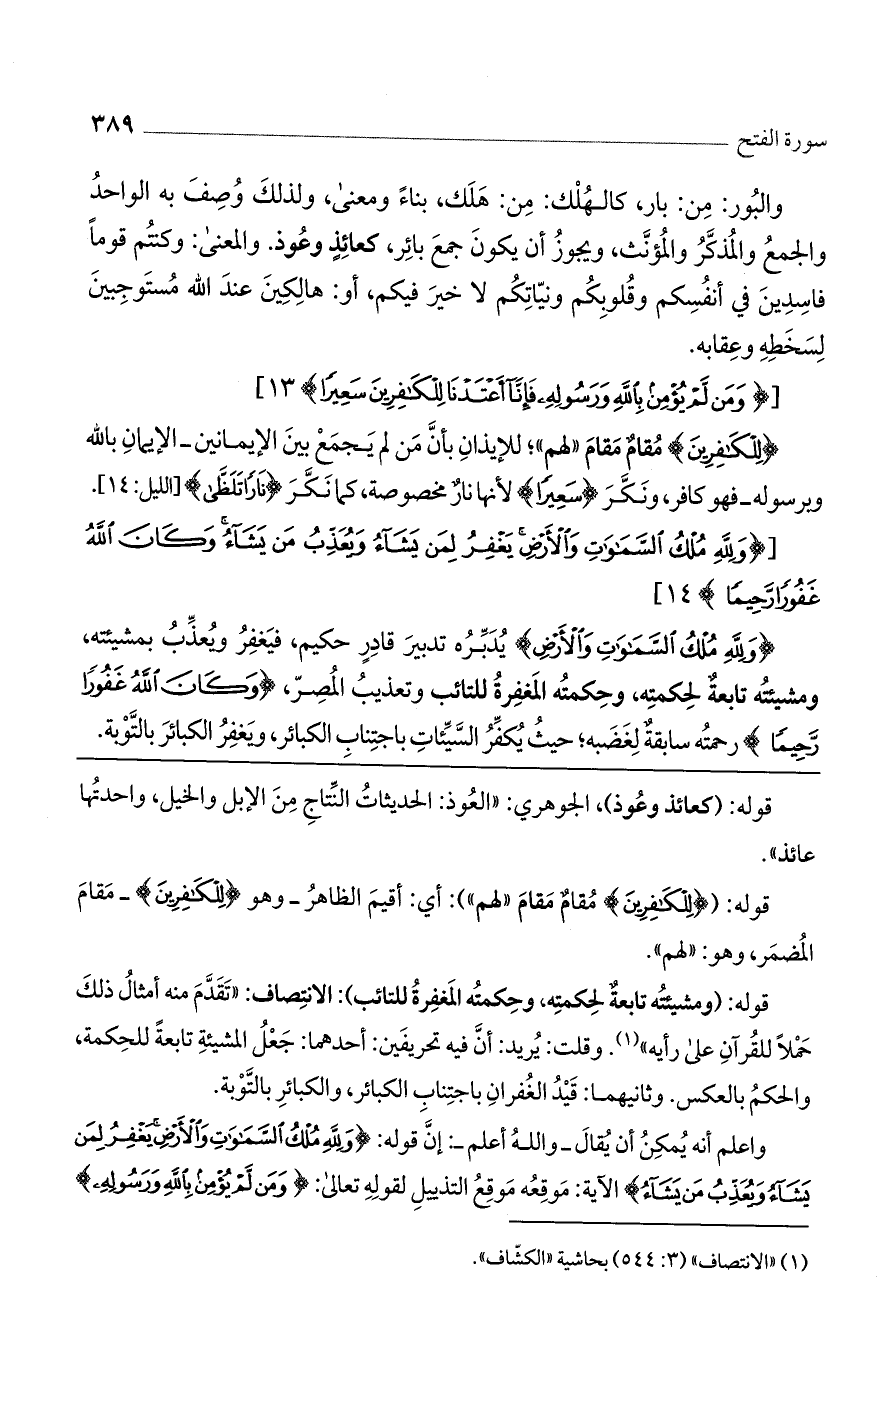 سورة الفتح ٣٨٩
والبُور: مِن: بار، كالـهُلْك: مِن: هَلَك، بناءً ومعنىٰ، ولذلكَ وُصِفَ به الواحدُ
والجمعُ والمُذكَّرُ والمُؤنَّث، ويجوزُ أن يكونَ جمعَ بائِر، كعائِذٍ وعُوذ. والمعنىٰ: وكنتُم قوماً
فاسِدِينَ في أنفُسِكم وقُلوبِكُم ونيّاتِكُم لا خيرَ فيكم، أو: هالِكِينَ عندَ الله مُستَوجِبينَ
لِسَخَطِهِ وعِقابه.
[﴿وَمَن لَّمْ يُؤْمِنۢ بِٱللَّهِ وَرَسُولِهِۦ فَإِنَّآ أَعْتَدْنَا لِلْكَٰفِرِينَ سَعِيرًا﴾ ١٣]
﴿لِلْكَٰفِرِينَ﴾ مُقامٌ مَقامَ «لهم»؛ للإيذانِ بأنَّ مَن لم يَـجمَعْ بينَ الإيمـانين ـ الإيمانِ بالله
وبرسوله ـ فهو كافر، ونَـكَّرَ ﴿سَعِيرًا﴾ لأنها نارٌ مخصوصة، كما نَـكَّرَ ﴿نَارًا تَلَظَّىٰ﴾ [الليل: ١٤].
[﴿وَلِلَّهِ مُلْكُ ٱلسَّمَٰوَٰتِ وَٱلْأَرْضِ ۚ يَغْفِرُ لِمَن يَشَآءُ وَيُعَذِّبُ مَن يَشَآءُ ۚ وَكَانَ ٱللَّهُ
غَفُورًا رَّحِيمًا﴾ ١٤]
﴿وَلِلَّهِ مُلْكُ ٱلسَّمَٰوَٰتِ وَٱلْأَرْضِ﴾ يُدَبِّـرُه تدبيرَ قادِرٍ حكيم، فيَغفِرُ ويُعذِّبُ بمشيئته،
ومشيئتُه تابعةٌ لِحكمتِه، وحِكمتُه المَغفِرةُ للتائب وتعذيبُ المُصِـرّ، ﴿وَكَانَ ٱللَّهُ غَفُورًا
رَّحِيمًا﴾ رحمتُه سابقةٌ لِغَضَبه؛ حيثُ يُكفِّرُ السَّيِّئاتِ باجتِنابِ الكبائر، ويَغفِرُ الكبائرَ بالتَّوْبة.
قوله: (كعائذ وعُوذ)، الجوهري: «العُوذ: الحديثاتُ النِّتاجِ مِنَ الإبل والخيل، واحدتُها
عائذ».
قوله: (﴿لِلْكَٰفِرِينَ﴾ مُقامٌ مَقامَ «لهم»): أي: أقيمَ الظاهرُ ـ وهو ﴿لِلْكَٰفِرِينَ﴾ ـ مَقامَ
المُضمَر، وهو: «لهم».
قوله: (ومشيئتُه تابعةٌ لِحكمتِه، وحِكمتُه المَغفِرةُ للتائب): الانتِصاف: «تَقَدَّمَ منه أمثالُ ذلكَ
حَمْلاً للقُرآنِ علىٰ رأيه»(١). وقلت: يُريد: أنَّ فيه تحريفَين: أحدهما: جَعْلُ المشيئةِ تابعةً للحِكمة،
والحكمُ بالعكس. وثانيهمـا: قَيْدُ الغُفرانِ باجتِنابِ الكبائر، والكبائرِ بالتَّوْبة.
واعلم أنه يُمكِنُ أن يُقالَ ـ واللـهُ أعلم ـ: إنَّ قوله: ﴿وَلِلَّهِ مُلْكُ ٱلسَّمَٰوَٰتِ وَٱلْأَرْضِ ۚ يَغْفِرُ لِمَن
يَشَآءُ وَيُعَذِّبُ مَن يَشَآءُ﴾ الآية: مَوقِعُه مَوقِعُ التذييلِ لقولِهِ تعالىٰ: ﴿وَمَن لَّمْ يُؤْمِنۢ بِٱللَّهِ وَرَسُولِهِۦ﴾
(١) «الانتصاف» (٣: ٥٤٤) بحاشية «الكشّاف».